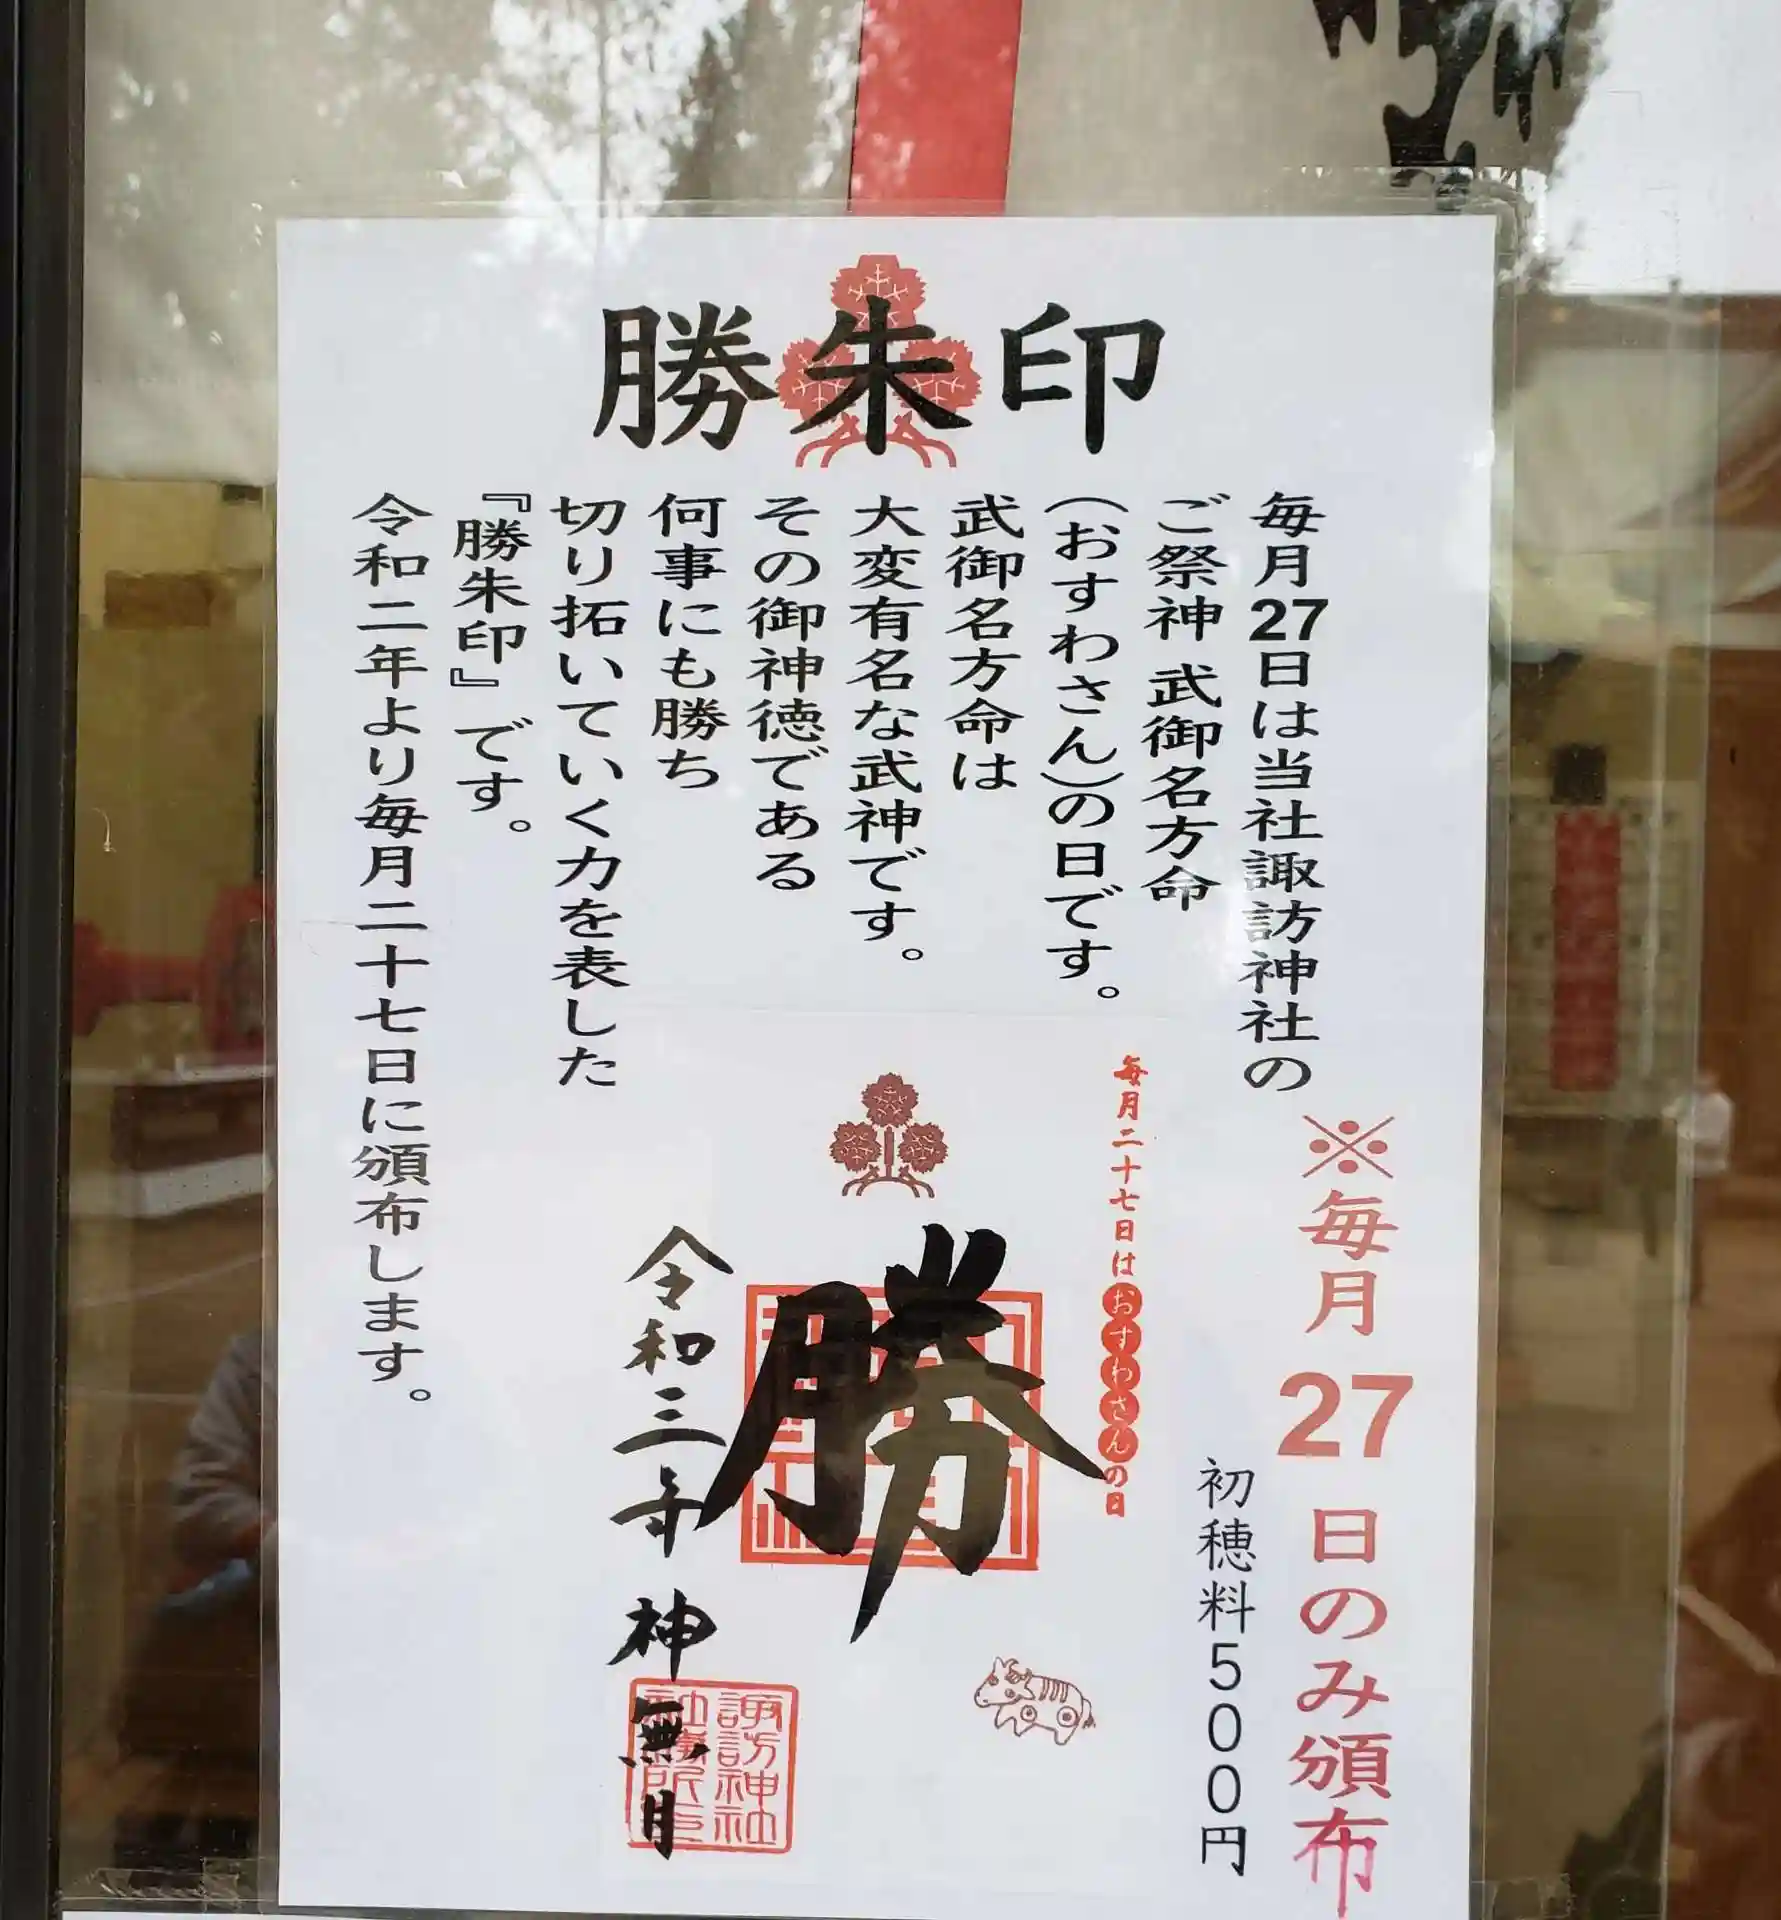 勝朱印
毎月27日は当社諏訪神社の
ご祭神 武御名方命
(おすわさん)の日です。
武御名方命は
大変有名な武神です。
その御神徳である
何事にも勝ち
切り拓いていく力を表した
『勝朱印』です。
令和二年より毎月二十七日に頒布します。
※毎月27日のみ頒布
初穂料500円
毎月二十七日はおすわさんの日
勝
令和三年 神無月
諏訪神社